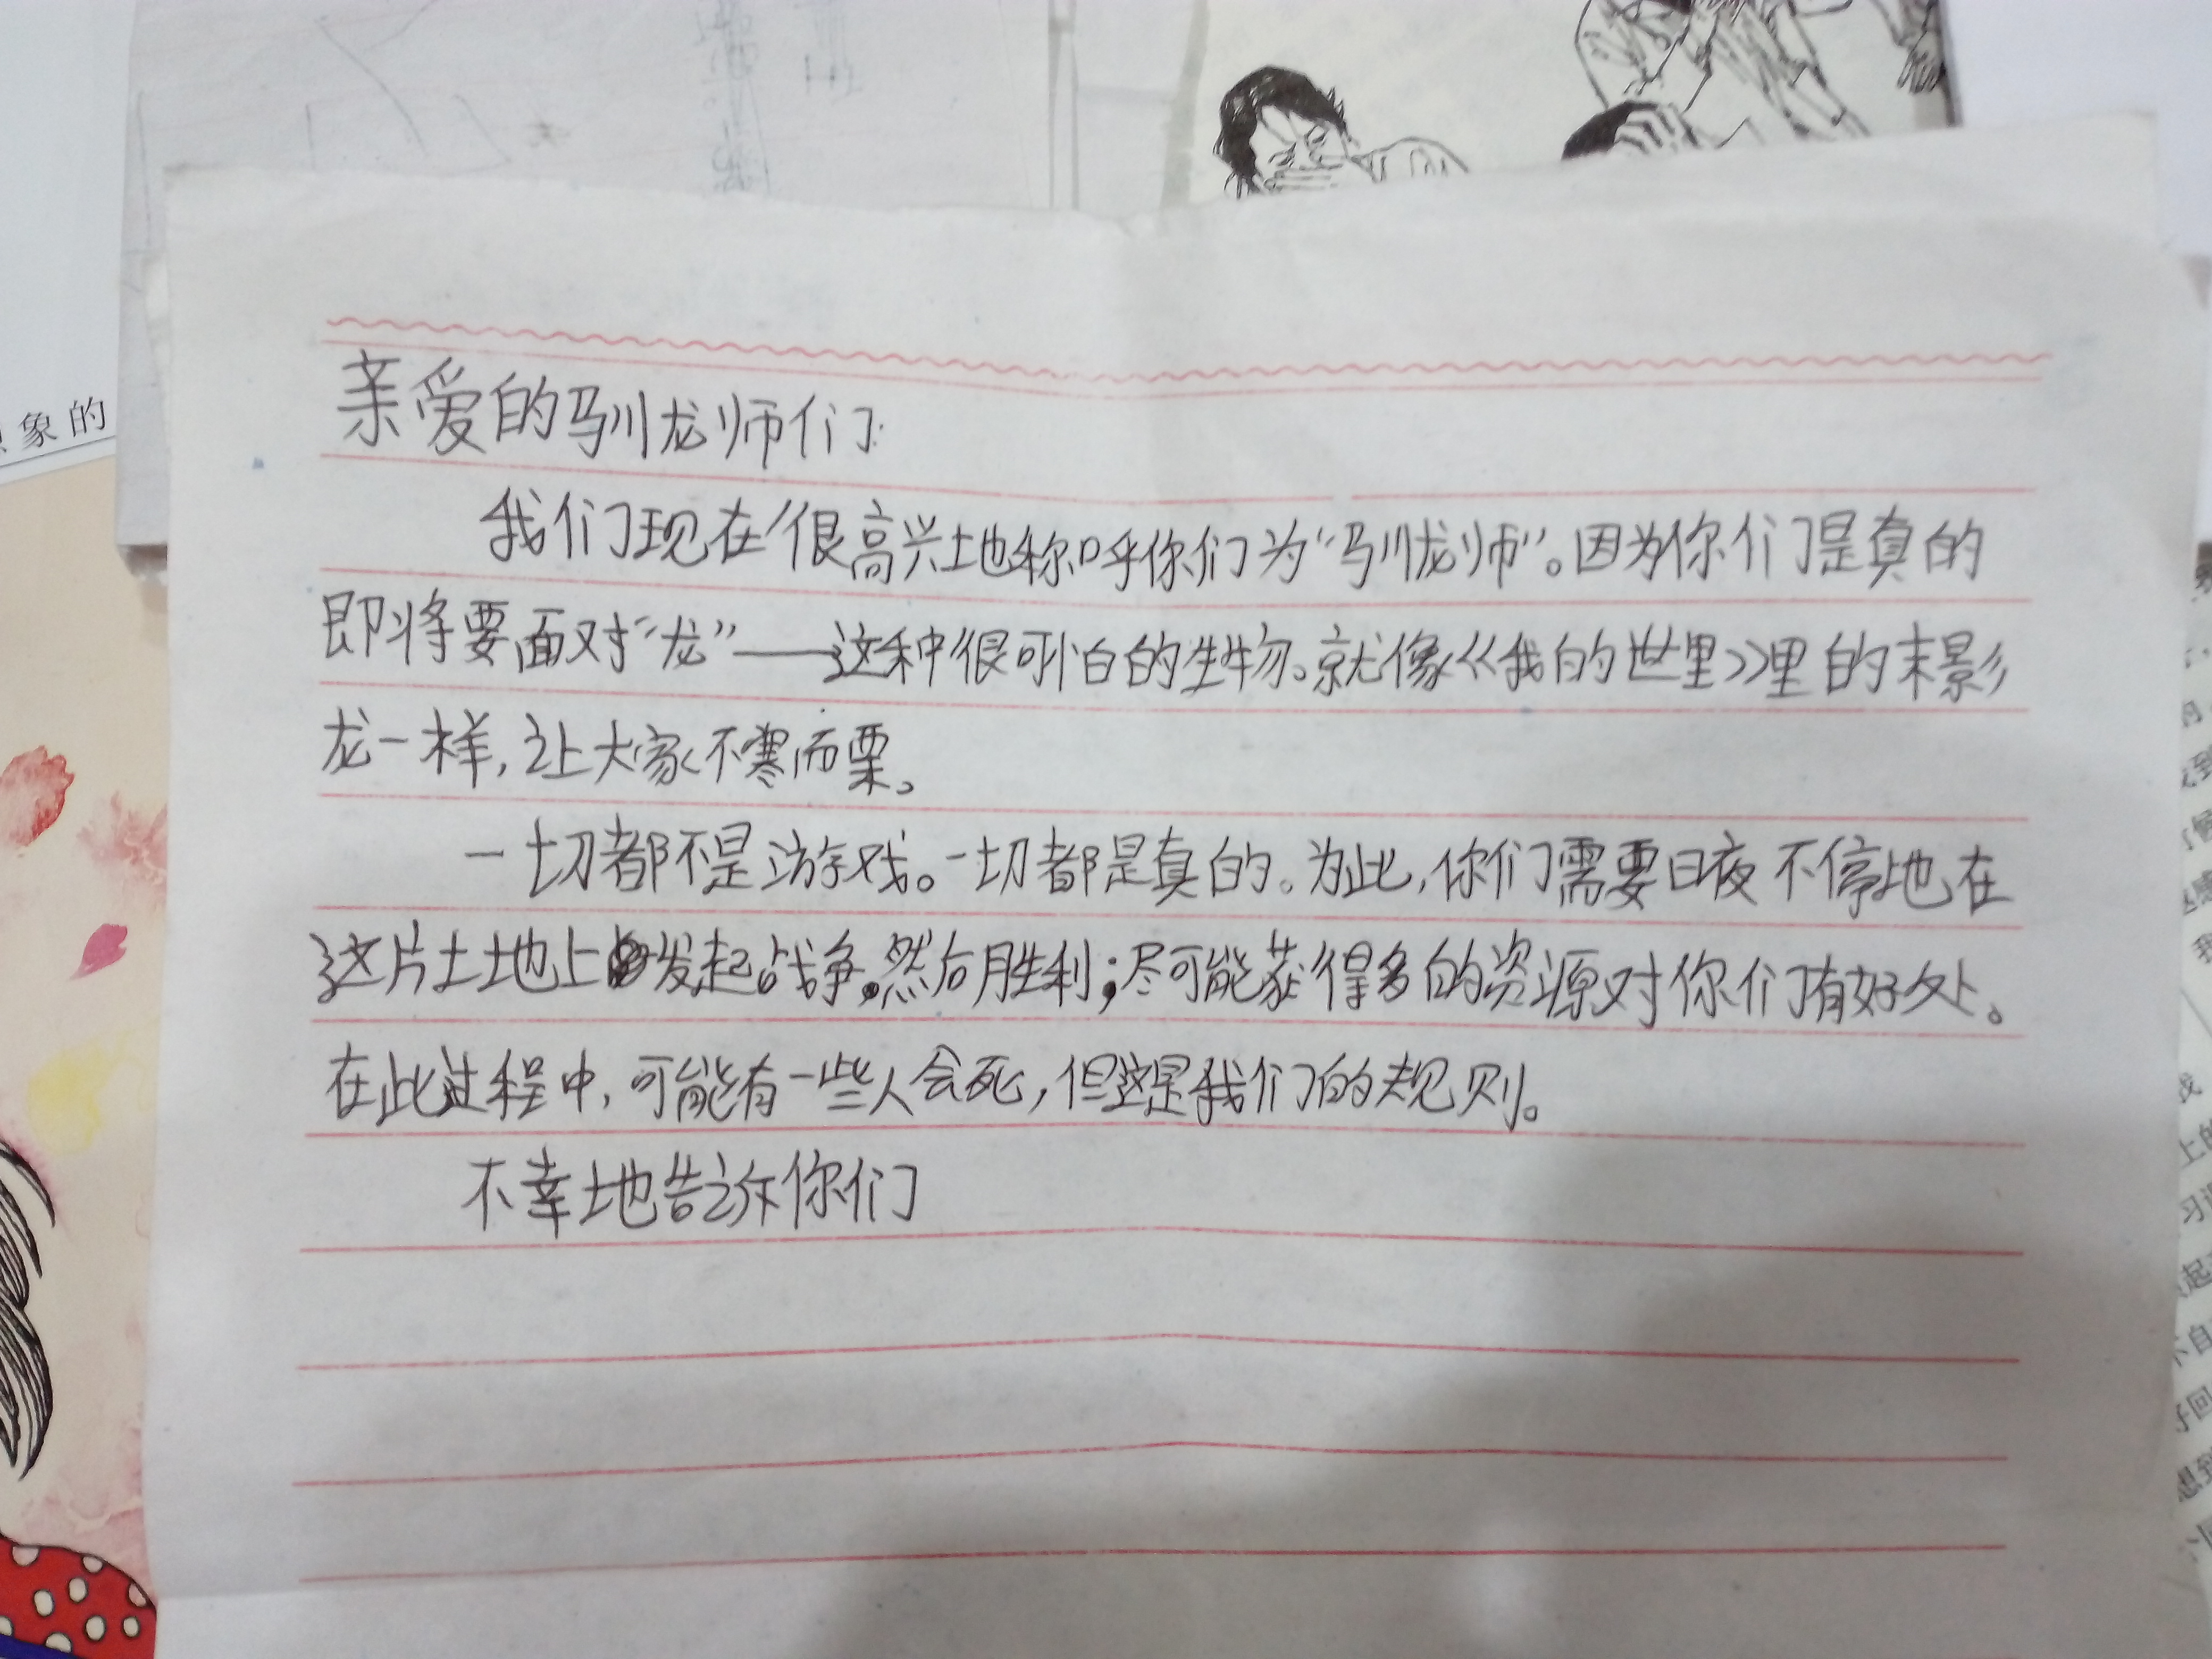 亲爱的驯龙师们:
我们现在很高兴地称呼你们为“驯龙师”。因为你们是真的
即将要面对“龙”——这种很可怕的生物。就像《我的世里》里的末影
龙一样,让大家不寒而栗。
一切都不是游戏。一切都是真的。为此,你们需要日夜不停地在
这片土地上发起战争,然后胜利;尽可能获得多的资源对你们有好处。
在此过程中,可能有一些人会死,但这是我们的规则。
不幸地告诉你们
象的